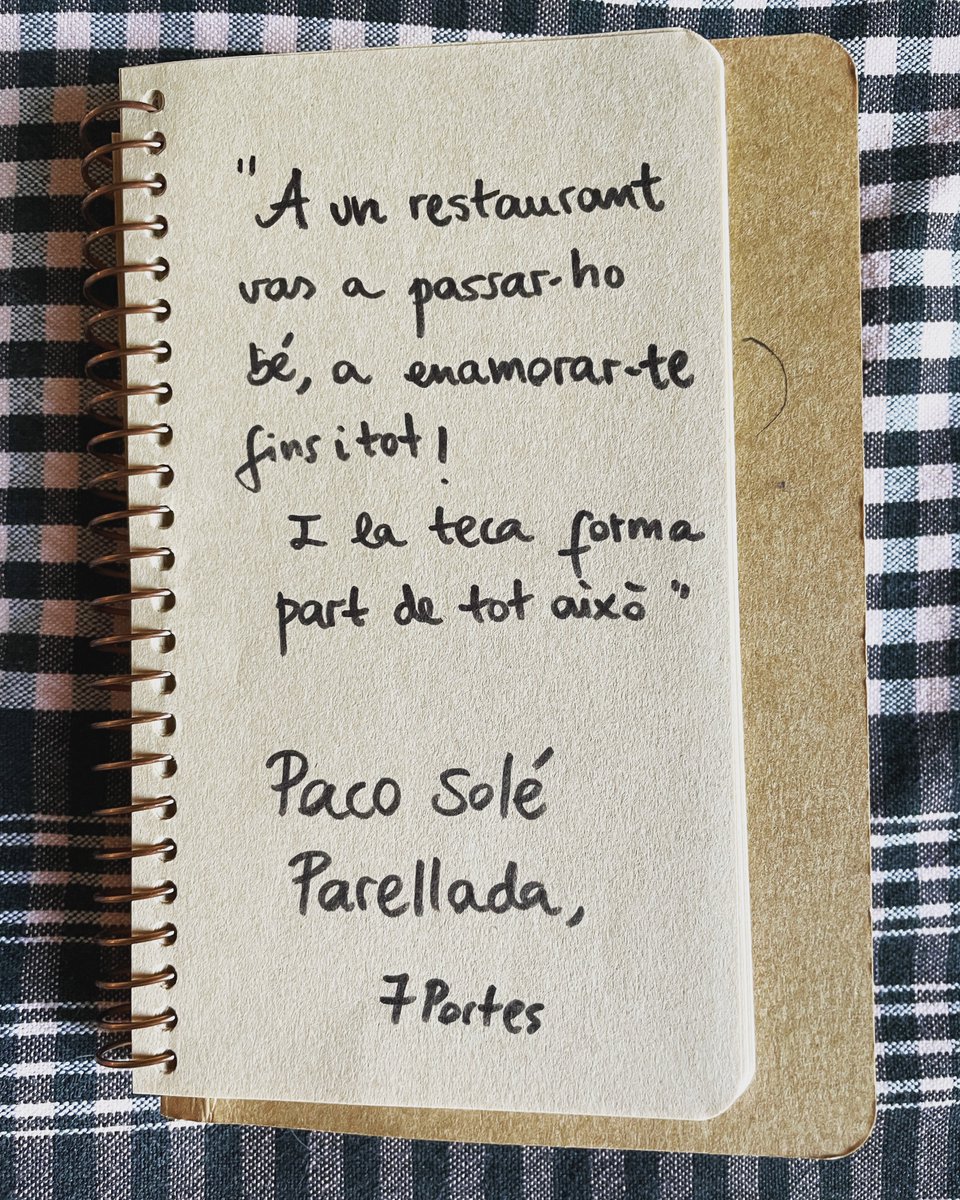 "A un restaurant
vas a passar-ho
bé, a enamorar-te
fins i tot!
I la teca forma
part de tot això"
Paco Solé
Parellada,
7 Portes